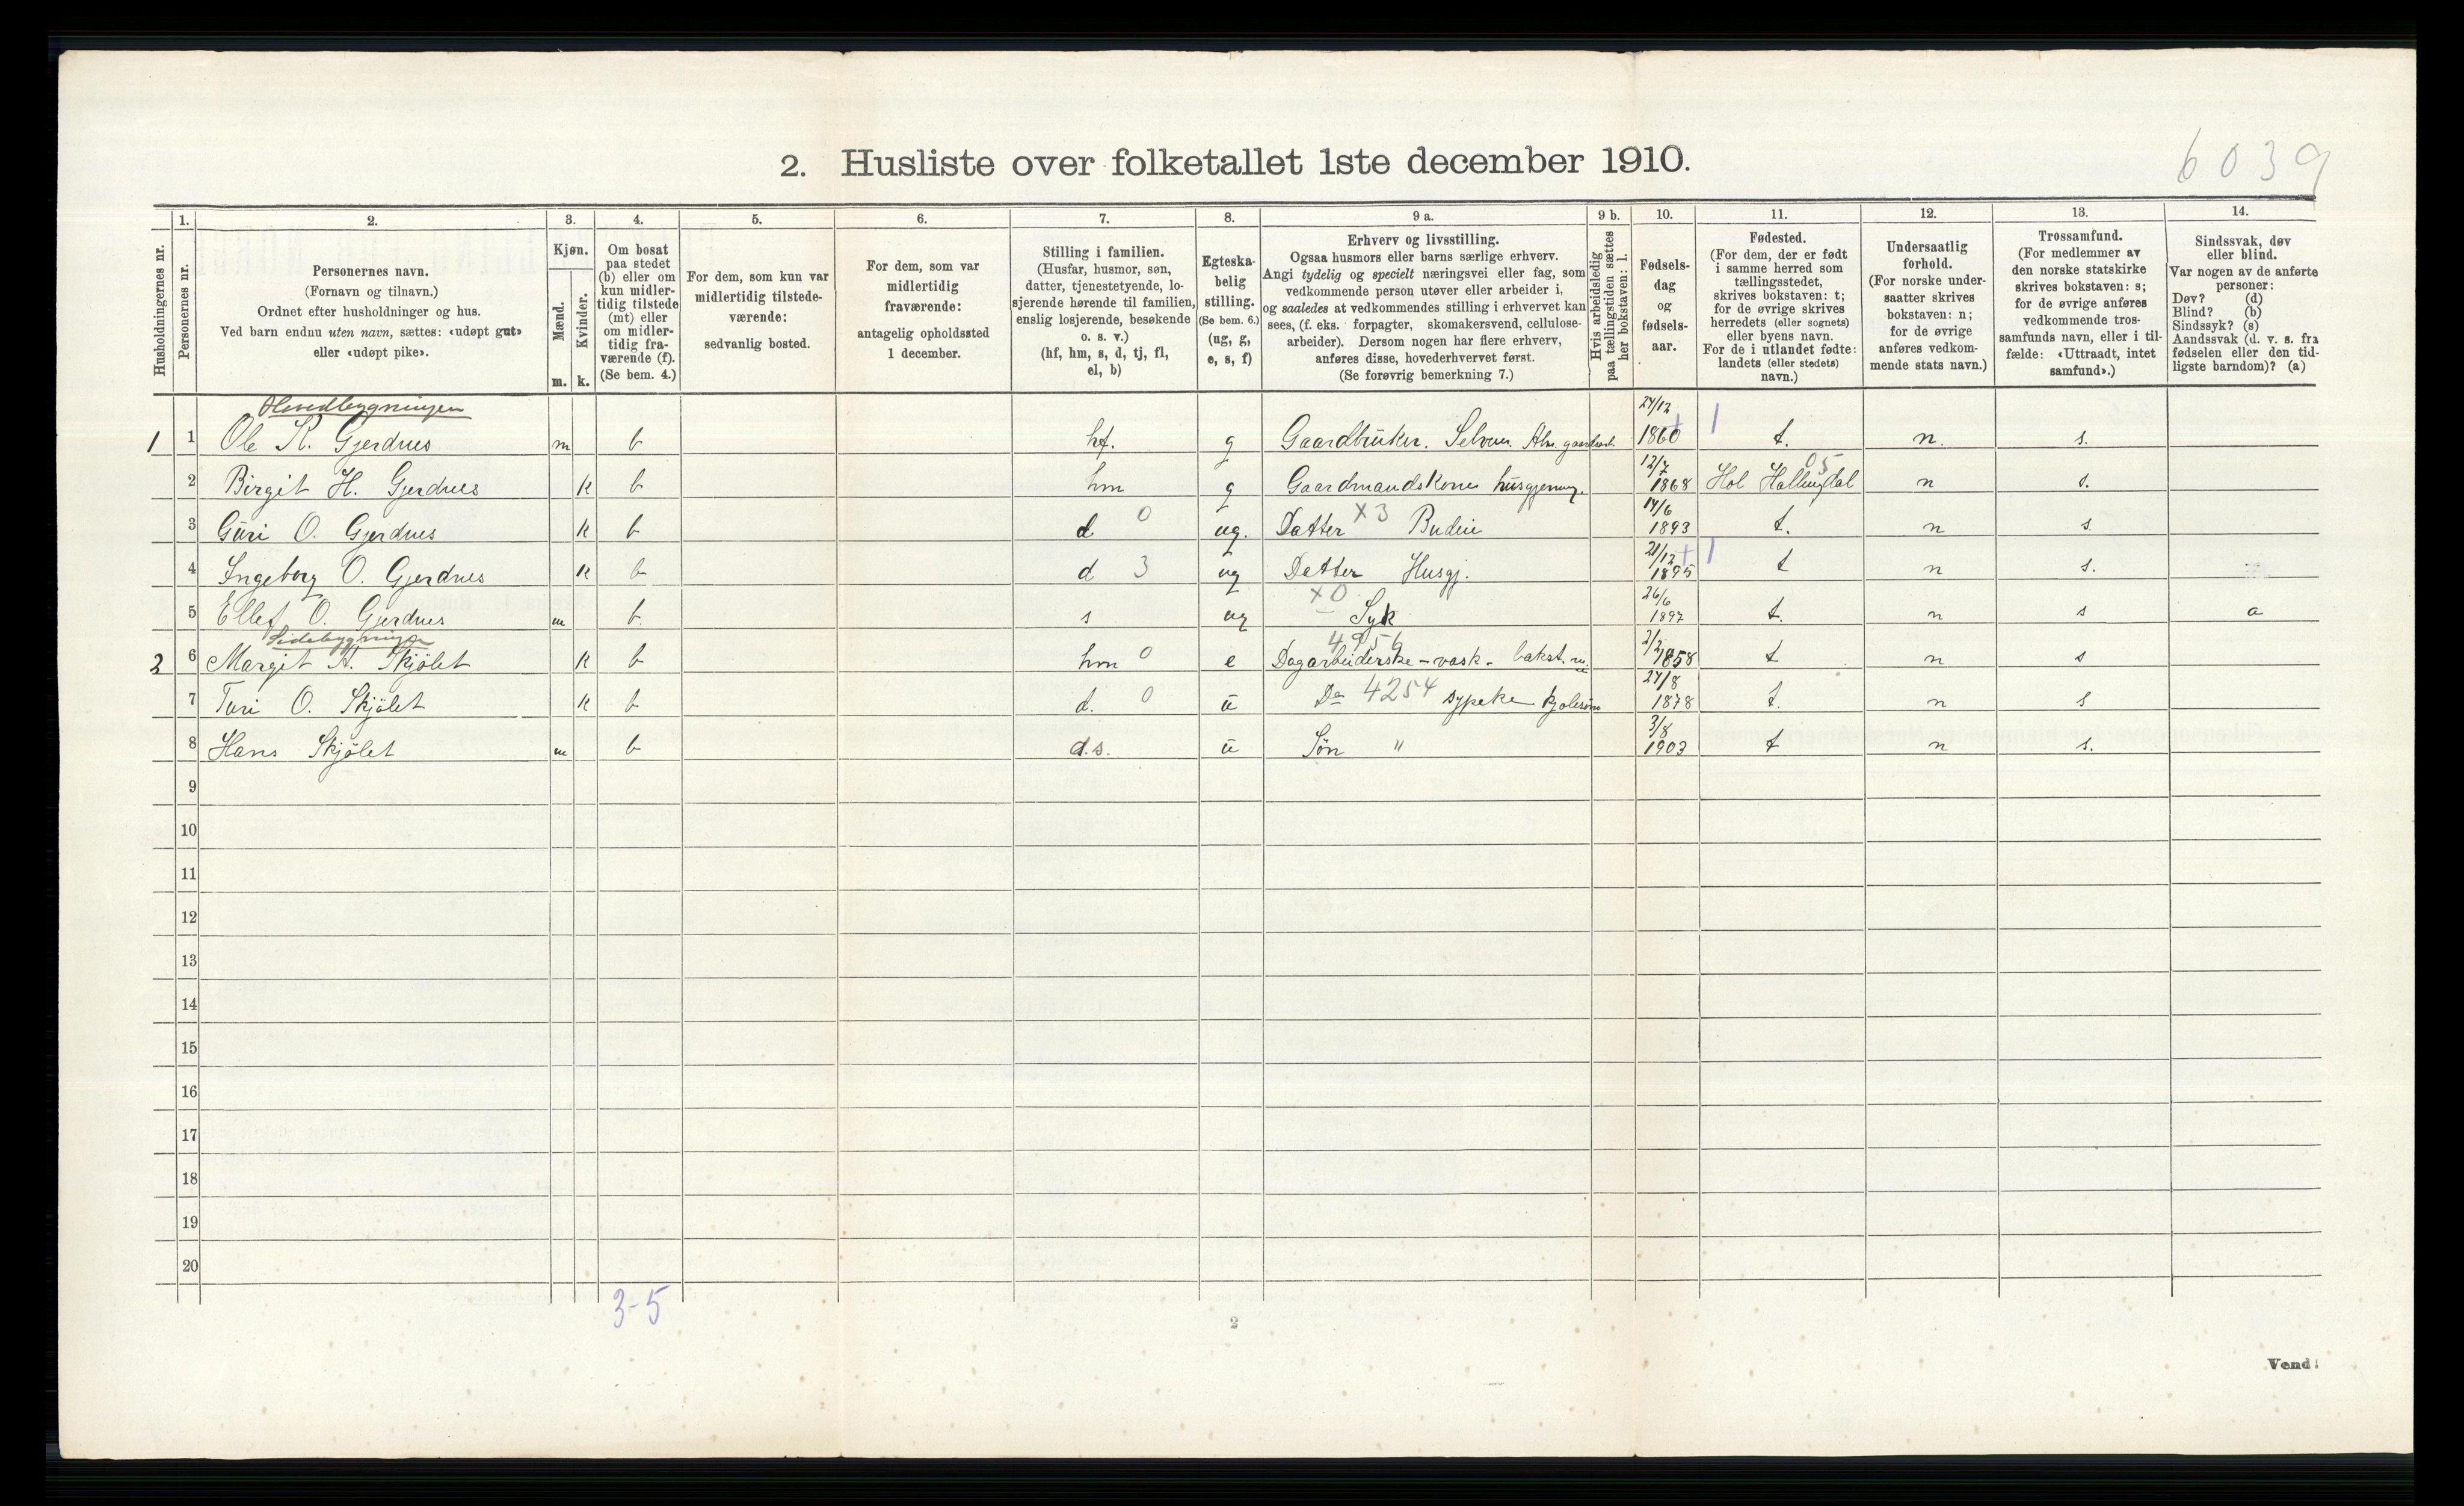 2. Husliste over folketallet 1ste december 1910.
6039
Husholdningernes nr.
1.
Personernes nr.
2.
Personernes navn.
(Fornavn og tilnavn.)
Ordnet efter husholdninger og hus.
Ved barn endnu uten navn, sættes: «udøpt gut»
eller «udøpt pike».
3.
Kjøn.
Mænd.
m.
Kvinder.
k.
4.
Om bosat
paa stedet
(b) eller om
kun midler-
tidig tilstede
(mt) eller
om midler-
tidig fra-
værende (f).
(Se bem. 4.)
5.
For dem, som kun var
midlertidig tilstede-
værende:
sedvanlig bosted.
6.
For dem, som var
midlertidig
fraværende:
antagelig opholdssted
1 december.
7.
Stilling i familien.
(Husfar, husmor, søn,
datter, tjenestetyende, lo-
sjerende hørende til familien,
enslig losjerende, besøkende
o. s. v.)
(hf, hm, s, d, tj, fl,
el, b)
8.
Egteska-
belig
stilling.
(Se bem. 6.)
(ug, g,
e, s, f)
9 a.
Erhverv og livsstilling.
Ogsaa husmors eller barns særlige erhverv.
Angi tydelig og specielt næringsvei eller fag, som
vedkommende person utøver eller arbeider i,
og saaledes at vedkommendes stilling i erhvervet kan
sees, (f. eks. forpagter, skomakersvend, cellulose-
arbeider). Dersom nogen har flere erhverv,
anføres disse, hovederhvervet først.
(Se forøvrig bemerkning 7.)
9 b.
Hvis arbeidsledig
paa tællingstiden sættes
her bokstaven: l.
10.
Fødsels-
dag
og
fødsels-
aar.
11.
Fødested.
(For dem, der er født
i samme herred som
tællingsstedet,
skrives bokstaven: t;
for de øvrige skrives
herredets (eller sognets)
eller byens navn.
For de i utlandet fødte:
landets (eller stedets)
navn.)
12.
Undersaatlig
forhold.
(For norske under-
saatter skrives
bokstaven: n;
for de øvrige
anføres vedkom-
mende stats navn.)
13.
Trossamfund.
(For medlemmer av
den norske statskirke
skrives bokstaven: s;
for de øvrige anføres
vedkommende tros-
samfunds navn, eller i til-
fælde: «Uttraadt, intet
samfund».)
14.
Sindssvak, døv
eller blind.
Var nogen av de anførte
personer:
Døv? (d)
Blind? (b)
Sindssyk? (s)
Aandssvak (d. v. s. fra
fødselen eller den tid-
ligste barndom)? (a)
Hovedbygningen
1 1 Ole K. Gjerdnes m b hf. g Gaardbruker. Selveier 24/12 1860 t. n. s.
2 Birgit H. Gjerdnes k b hm g Gaardmandskone husgjerning. 12/7 1868 Hol Hallingdal 05 n s.
3 Guri O. Gjerdnes k b d 0 ug. Datter X3 Budeie 14/6 1893 t. n s
4 Ingeborg O. Gjerdnes k b d 3 ug Datter Husgj. 21/12 1895 t n s.
5 Ellef O. Gjerdnes m b. s ug X0 – Syk 26/6 1897 t. n s a
Sidebygningen
2 6 Margit A. Skjölet k b hm 0 e 4956 Dagarbeiderske – vask – bakst. 2/2 1858 t n s
7 Turi O. Skjölet k b d. 0 u Do 4254 sypeke kjolesøm 27/8 1878 t. n s
8 Hans Skjölet m b d.s. u Søn " 3/8 1903 t n s.
9
10
11
12
13
14
15
16
17
18
19
20
3-5
2
Vend!